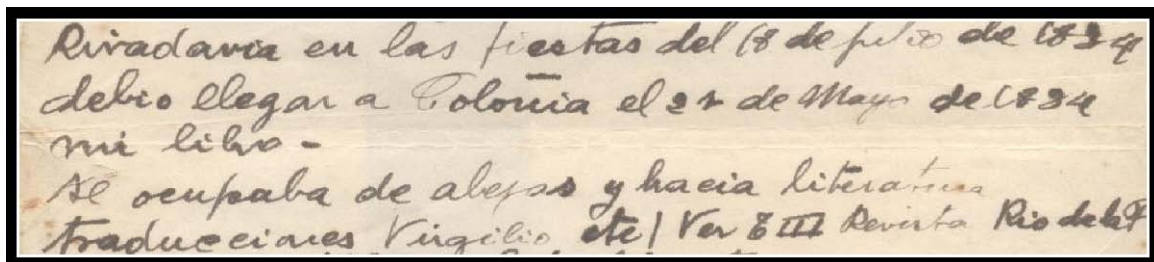 Rivadavia en las fiestas del 18 de julio de 1834
debio llegar a Colonia el 21 de Mayo de 1834
mi libro -
se ocupaba de abejas y hacia literatura
traducciones Virgilio, etc/ Ver T III Revista Rio de la P